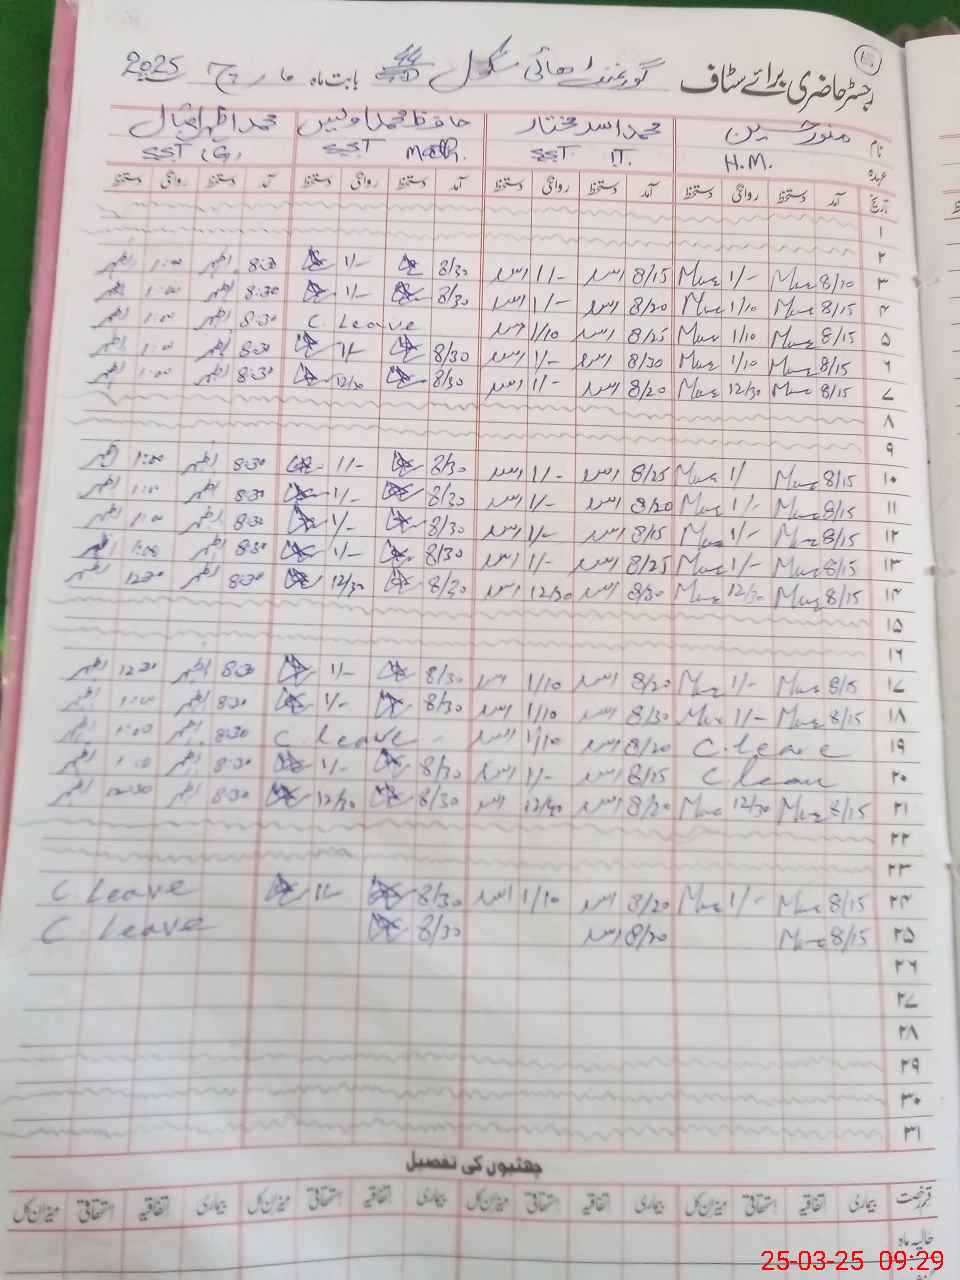 رجسٹر حاضری برائے سٹاف گورنمنٹ ہائی سکول 44 بابت ماہ مارچ 2025
نام منور حسین محمد اسد مختار حافظ محمد اویس محمد اظہر اقبال
عہدہ H.M. SST IT. SST Math. SST (G)
تاریخ آمد دستخط روانگی دستخط آمد دستخط روانگی دستخط آمد دستخط روانگی دستخط آمد دستخط روانگی دستخط
۱
۲
۳ 8/10 1/- 8/15 اسد 1/- اسد 8/30 1/- 8:30 اظہر 1:00 اظہر
۴ 8/15 1/10 8/20 اسد 1/- اسد 8/30 1/- 8:30 اظہر 1:00 اظہر
۵ 8/15 1/10 8/25 اسد 1/10 اسد C. Leave 8:30 اظہر 1:00 اظہر
۶ 8/15 1/10 8/30 اسد 1/- اسد 8/30 1/- 8:30 اظہر 1:00 اظہر
۷ 8/15 12/30 8/20 اسد 1/- اسد 8/30 12/30 8:30 اظہر 1:00 اظہر
۸
۹
۱۰ 8/15 1/ 8/25 اسد 1/- اسد 8/30 1/- 8:30 اظہر 1:00 اظہر
۱۱ 8/15 1/- 8/20 اسد 1/- اسد 8/30 1/- 8:30 اظہر 1:00 اظہر
۱۲ 8/15 1/- 8/15 اسد 1/- اسد 8/30 1/- 8:30 اظہر 1:00 اظہر
۱۳ 8/15 1/- 8/25 اسد 1/- اسد 8/30 1/- 8:30 اظہر 1:00 اظہر
۱۴ 8/15 12/30 8/30 اسد 12/30 اسد 8/30 12/30 8:30 اظہر 12:30 اظہر
۱۵
۱۶
۱۷ 8/15 1/- 8/20 اسد 1/10 اسد 8/30 1/- 8:30 اظہر 12:30 اظہر
۱۸ 8/15 1/- 8/30 اسد 1/10 اسد 8/30 1/- 8:30 اظہر 1:00 اظہر
۱۹ C. leave 8/20 اسد 1/10 اسد C. leave 8:30 اظہر 1:00 اظہر
۲۰ C leave 8/15 اسد 1/- اسد 8/30 1/- 8:30 اظہر 1:00 اظہر
۲۱ 8/15 12/30 8/20 اسد اسد 8/30 12/30 8:30 اظہر 12:30 اظہر
۲۲
۲۳
۲۴ 8/15 1/- 8/20 اسد 1/10 اسد 8/30 1/- C. Leave
۲۵ 8/15 8/20 اسد 8/30 C. Leave
۲۶
۲۷
۲۸
۲۹
۳۰
۳۱
چھٹیوں کی تفصیل
قسم رخصت بیماری اتفاقیہ استحقاقی میزان کل بیماری اتفاقیہ استحقاقی میزان کل بیماری اتفاقیہ استحقاقی میزان کل بیماری اتفاقیہ استحقاقی میزان کل
حالیہ ماہ
25-03-25 09:29